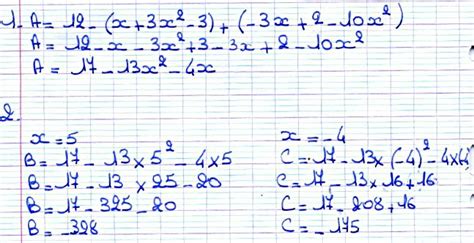 1. A = 12 - (x + 3x² - 3) + (-3x + 2 - 10x²)
A = 12 - x - 3x² + 3 - 3x + 2 - 10x²
A = 17 - 13x² - 4x
2.
x = 5
B = 17 - 13 × 5² - 4 × 5
B = 17 - 13 × 25 - 20
B = 17 - 325 - 20
B = -328
x = -4
C = 17 - 13 × (-4)² - 4 × (-4)
C = 17 - 13 × 16 + 16
C = 17 - 208 + 16
C = - 175